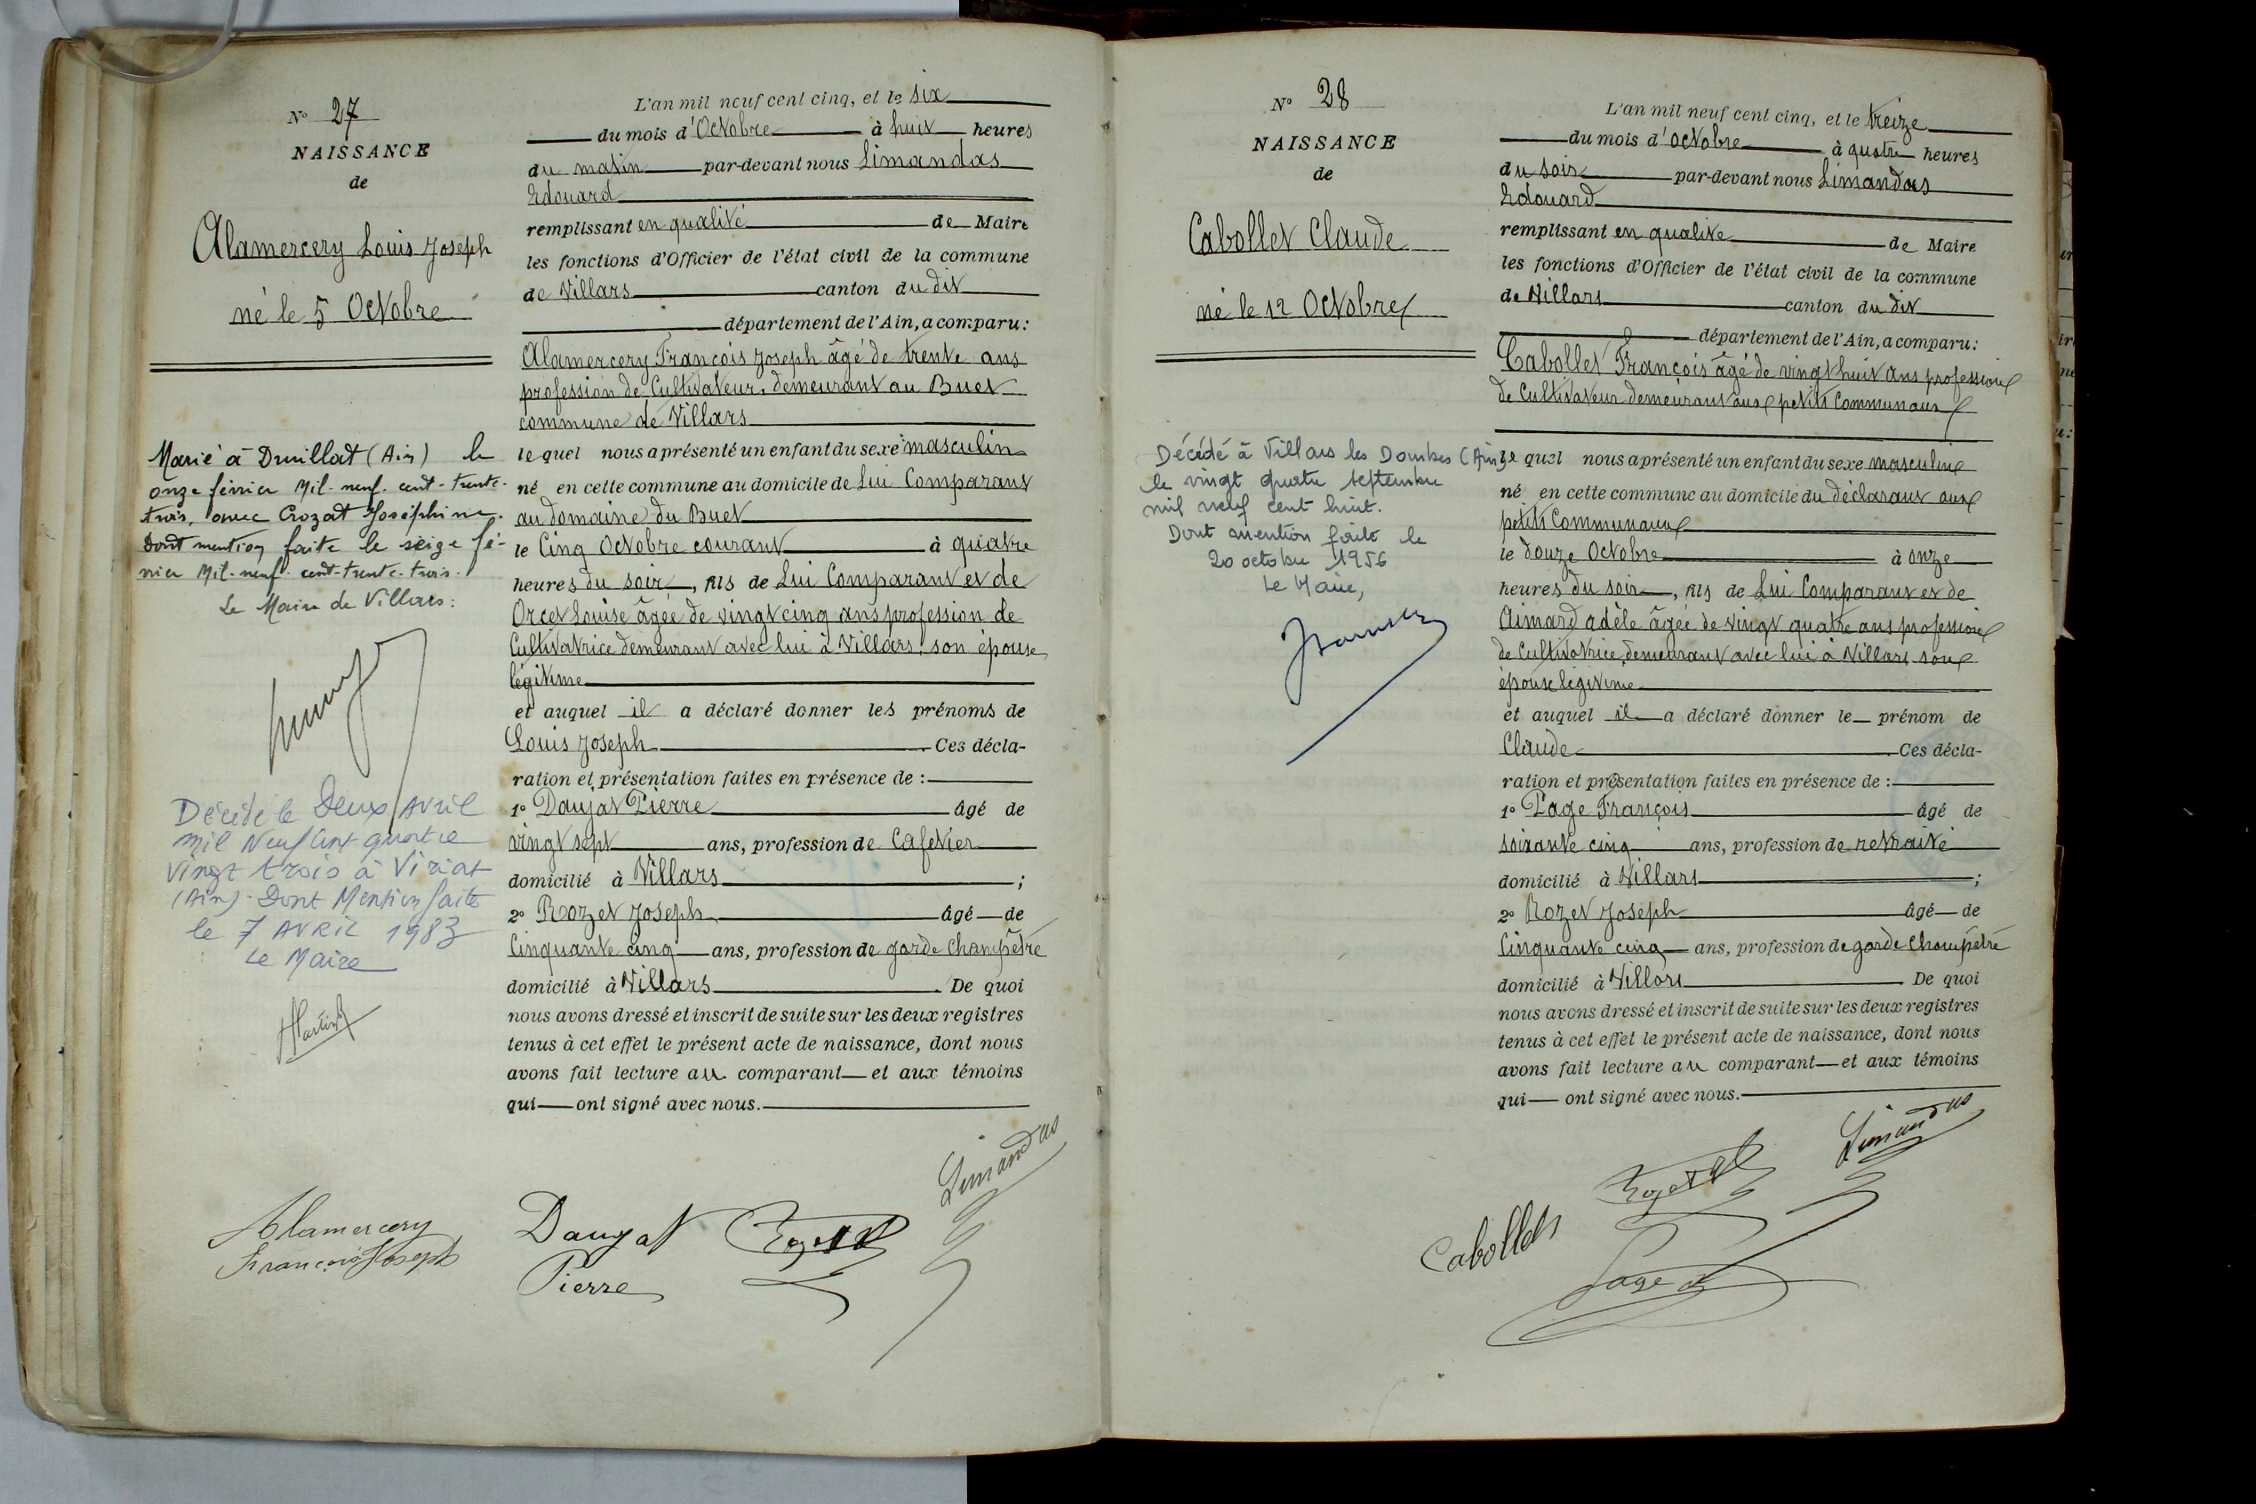 N° 27
NAISSANCE
de
Alamercery Louis Joseph
né le 5 Octobre
Marié à Druillat (Ain) le
onze février Mil-neuf-cent-trente-
trois, avec Crozat Joséphine.
Dont mention faite le seize fé-
vrier Mil-neuf-cent-trente-trois.
Le Maire de Villars:
Décédé le Deux Avril
mil Neuf Cent quatre
vingt trois à Viriat
(Ain). Dont Mention faite
le 7 AVRIL 1983
Le Maire
L'an mil neuf cent cinq, et le six
du mois d'Octobre à huit heures
du matin par-devant nous Limandas
Edouard
remplissant en qualité de Maire
les fonctions d'Officier de l'état civil de la commune
de Villars canton du dit
département de l'Ain, a comparu:
Alamercery François Joseph âgé de trente ans
profession de Cultivateur, demeurant au Buet
commune de Villars
lequel nous a présenté un enfant du sexe masculin
né en cette commune au domicile de Lui Comparant
au domaine du Buet
le Cinq Octobre courant à quatre
heures du soir, fils de Lui Comparant et de
Orcet Louise âgée de vingt cinq ans profession de
Cultivatrice demeurant avec lui à Villars, son épouse
légitime
et auquel il a déclaré donner les prénoms de
Louis Joseph Ces décla-
ration et présentation faites en présence de :
1° Daujat Pierre âgé de
vingt sept ans, profession de Cafetier
domicilié à Villars ;
2° Rozet Joseph âgé de
Cinquante cinq ans, profession de garde Champêtre
domicilié à Villars. De quoi
nous avons dressé et inscrit de suite sur les deux registres
tenus à cet effet le présent acte de naissance, dont nous
avons fait lecture au comparant et aux témoins
qui ont signé avec nous.
Limandas
Alamercery
François Joseph
Daujat
Pierre
Rozet
N° 28
NAISSANCE
de
Cabollet Claude
né le 12 Octobre
Décédé à Villars les Dombes (Ain)
le vingt quatre septembre
mil neuf cent huit.
Dont mention faite le
20 octobre 1956
Le Maire,
L'an mil neuf cent cinq, et le treize
du mois d'octobre à quatre heures
du soir par-devant nous Limandas
Edouard
remplissant en qualité de Maire
les fonctions d'Officier de l'état civil de la commune
de Villars canton du dit
département de l'Ain, a comparu:
Cabollet François âgé de vingt huit ans profession
de Cultivateur demeurant aux petits Communaux
lequel nous a présenté un enfant du sexe masculin
né en cette commune au domicile du déclarant aux
petits Communaux
le douze Octobre à onze
heures du soir, fils de Lui Comparant et de
Aimard adèle âgée de vingt quatre ans profession
de Cultivatrice, demeurant avec lui à Villars son
épouse légitime
et auquel il a déclaré donner le prénom de
Claude Ces décla-
ration et présentation faites en présence de :
1° Page François âgé de
soixante cinq ans, profession de retraité
domicilié à Villars ;
2° Rozet Joseph âgé de
Cinquante cinq ans, profession de garde champêtre
domicilié à Villars De quoi
nous avons dressé et inscrit de suite sur les deux registres
tenus à cet effet le présent acte de naissance, dont nous
avons fait lecture au comparant et aux témoins
qui ont signé avec nous.
Limandas
Rozet
Cabollet
Page